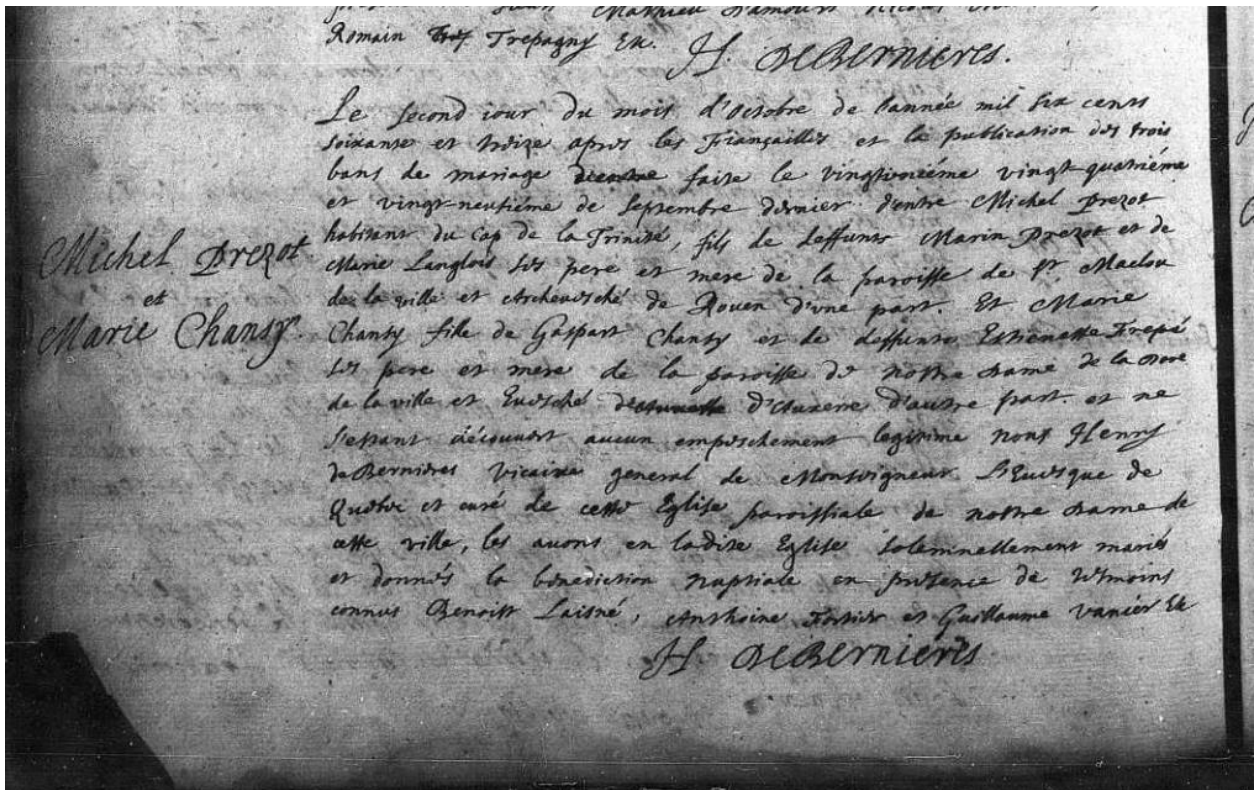 Mathieu Damours
Romain Trepagny Etc.
H. DeBernieres.
Le second iour du mois d'octobre de l'année mil six cents
soixante et treize apres les Fiançailles et la publication des trois
bans de mariage faite le vingtiéme vingt-quatriéme
et vingt-neufiéme de Septembre dernier d'entre Michel Prezot
habitant du Cap de la Trinité, fils de deffunts Marin Prezot et de
Marie Langlois ses pere et mere de la paroisse de St Maclou
de la ville et Archeuesché de Rouen d'vne part. Et Marie
Chansy fille de Gaspart Chansy et de deffunte Estiennette
ses pere et mere de la paroisse de nostre Dame de la
de la ville et Euesché d'Auxerre d'autre part. et ne
s'estant découuert aucun empeschement legitime nous Henry
de Bernieres vicaire general de Monseigneur L'Euesque de
Quebec et curé de cette Eglise paroissiale de nostre Dame de
cette ville, les auons en ladite Eglise solemnellement mariés
et donnés la benediction nuptiale en presence de temoins
connus Benoist Laisné, Anthoine Fortier et Guillaume Vanier Etc
H. DeBernieres
Michel Prezot
et
Marie Chansy.